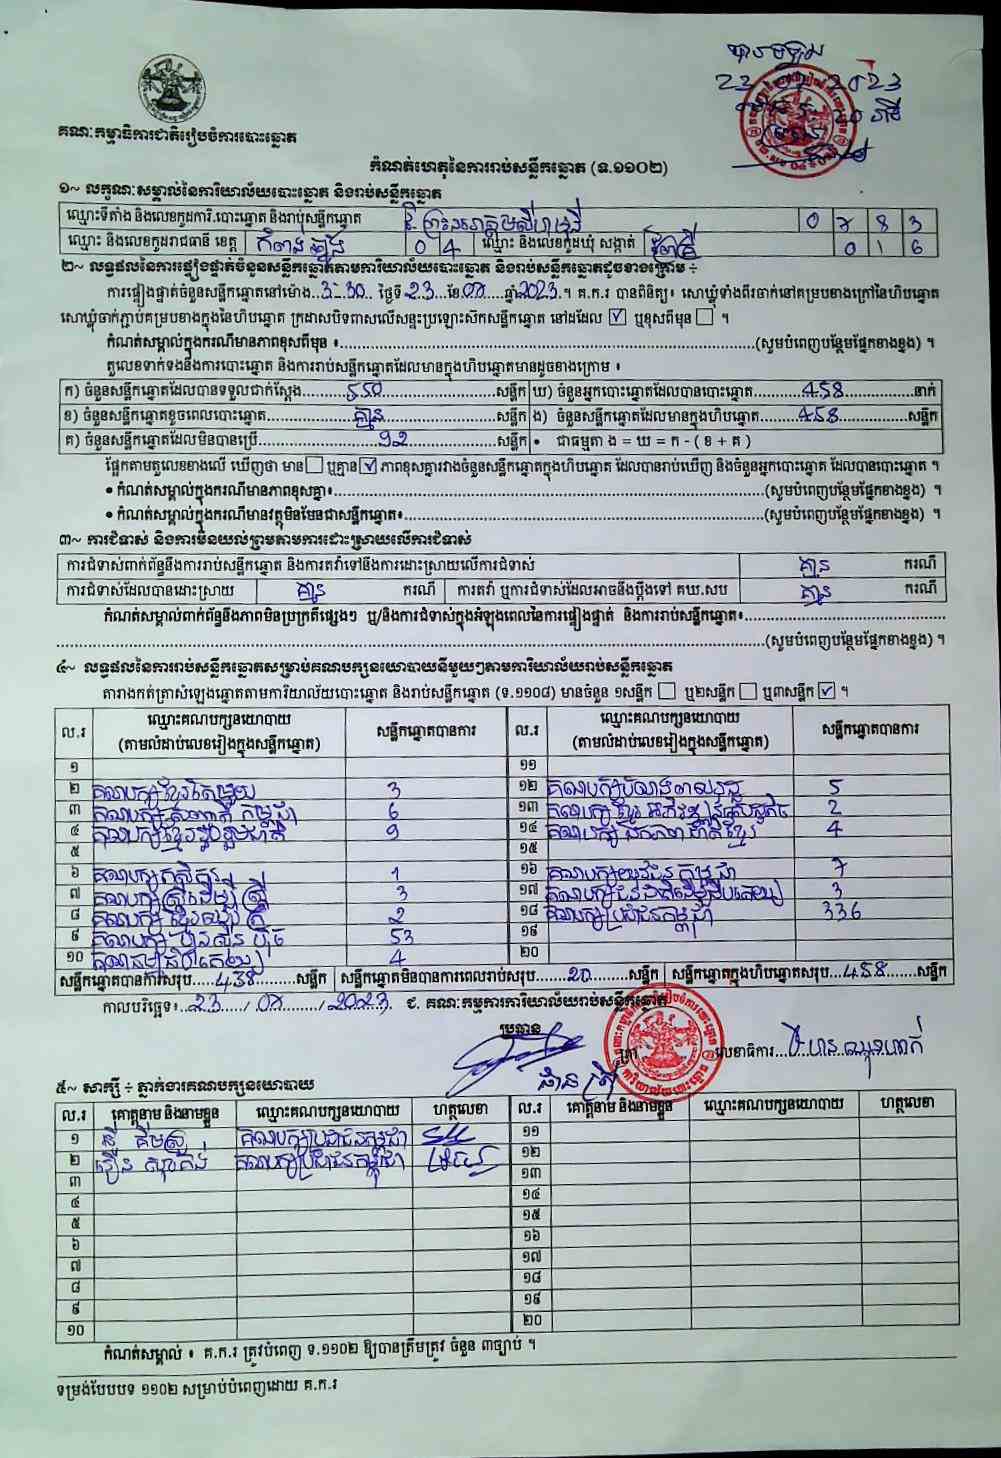 23 2023
គណៈកម្មាធិការជាតិរៀបចំការបោះឆ្នោត
កំណត់ហេតុនៃការរាប់សន្លឹកឆ្នោត (ទ.១១០២)
១~ លក្ខណៈសម្គាល់នៃការិយាល័យបោះឆ្នោត និងរាប់សន្លឹកឆ្នោត
ឈ្មោះទីតាំង និងលេខកូដការិ.បោះឆ្នោត និងរាប់សន្លឹកឆ្នោត 0 7 8 3
ឈ្មោះ និងលេខកូដរាជធានី ខេត្ត កំពង់ឆ្នាំង 0 4 ឈ្មោះ និងលេខកូដឃុំ សង្កាត់ 0 1 6
២~ លទ្ធផលនៃការផ្ទៀងផ្ទាត់ចំនួនសន្លឹកឆ្នោតតាមការិយាល័យបោះឆ្នោត និងរាប់សន្លឹកឆ្នោតដូចខាងក្រោម ៖
ការផ្ទៀងផ្ទាត់ចំនួនសន្លឹកឆ្នោតនៅម៉ោង..3-30.. ថ្ងៃទី.23..ខែ.07....ឆ្នាំ2023.។ គ.ក.រ បានពិនិត្យ៖ សោឃ្លុំទាំងពីរចាក់នៅគម្របខាងក្រៅនៃហិបឆ្នោត
សោឃ្លុំចាក់ភ្ជាប់គម្របខាងក្នុងនៃហិបឆ្នោត ក្រដាសបិទពាសលើសន្ទះប្រឡោះសឹកសន្លឹកឆ្នោត នៅដដែល ☑ ឬខុសពីមុន ☐ ។
កំណត់សម្គាល់ក្នុងករណីមានភាពខុសពីមុន ៖........(សូមបំពេញបន្ថែមផ្នែកខាងខ្នង) ។
តួលេខទាក់ទងនឹងការបោះឆ្នោត និងការរាប់សន្លឹកឆ្នោតដែលមានក្នុងហិបឆ្នោតមានដូចខាងក្រោម ៖
ក) ចំនួនសន្លឹកឆ្នោតដែលបានទទួលជាក់ស្តែង........550........សន្លឹក ឃ) ចំនួនអ្នកបោះឆ្នោតដែលបានបោះឆ្នោត........458........នាក់
ខ) ចំនួនសន្លឹកឆ្នោតខូចពេលបោះឆ្នោត........គ្មាន........សន្លឹក ង) ចំនួនសន្លឹកឆ្នោតដែលមានក្នុងហិបឆ្នោត........458........សន្លឹក
គ) ចំនួនសន្លឹកឆ្នោតដែលមិនបានប្រើ........92........សន្លឹក • ជាធម្មតា ង = ឃ = ក - ( ខ + គ )
ផ្អែកតាមតួលេខខាងលើ ឃើញថា មាន ☐ ឬគ្មាន ☑ ភាពខុសគ្នារវាងចំនួនសន្លឹកឆ្នោតក្នុងហិបឆ្នោត ដែលបានរាប់ឃើញ និងចំនួនអ្នកបោះឆ្នោត ដែលបានបោះឆ្នោត ។
• កំណត់សម្គាល់ក្នុងករណីមានភាពខុសគ្នា៖........(សូមបំពេញបន្ថែមផ្នែកខាងខ្នង) ។
• កំណត់សម្គាល់ក្នុងករណីមានវត្ថុមិនមែនជាសន្លឹកឆ្នោត៖........(សូមបំពេញបន្ថែមផ្នែកខាងខ្នង) ។
៣~ ការជំទាស់ និងការមិនយល់ព្រមតាមការដោះស្រាយលើការជំទាស់
ការជំទាស់ពាក់ព័ន្ធនឹងការរាប់សន្លឹកឆ្នោត និងការតវ៉ាទៅនឹងការដោះស្រាយលើការជំទាស់ គ្មាន ករណី
ការជំទាស់ដែលបានដោះស្រាយ គ្មាន ករណី ការតវ៉ា ឬការជំទាស់ដែលអាចនឹងប្តឹងទៅ គឃ.សប គ្មាន ករណី
កំណត់សម្គាល់ពាក់ព័ន្ធនឹងភាពមិនប្រក្រតីផ្សេងៗ ឬ/និងការជំទាស់ក្នុងអំឡុងពេលនៃការផ្ទៀងផ្ទាត់ និងការរាប់សន្លឹកឆ្នោត៖........
........(សូមបំពេញបន្ថែមផ្នែកខាងខ្នង) ។
៤~ លទ្ធផលនៃការរាប់សន្លឹកឆ្នោតសម្រាប់គណបក្សនយោបាយនីមួយៗតាមការិយាល័យរាប់សន្លឹកឆ្នោត
តារាងកត់ត្រាសំឡេងឆ្នោតតាមការិយាល័យបោះឆ្នោត និងរាប់សន្លឹកឆ្នោត (ទ.១១០៨) មានចំនួន ១សន្លឹក ☐ ឬ២សន្លឹក ☐ ឬ៣សន្លឹក ☑ ។
ល.រ ឈ្មោះគណបក្សនយោបាយ (តាមលំដាប់លេខរៀងក្នុងសន្លឹកឆ្នោត) សន្លឹកឆ្នោតបានការ ល.រ ឈ្មោះគណបក្សនយោបាយ (តាមលំដាប់លេខរៀងក្នុងសន្លឹកឆ្នោត) សន្លឹកឆ្នោតបានការ
១ ១១
២ គណបក្សខ្មែរតែមួយ 3 ១២ 5
៣ គណបក្ស កម្ពុជា 6 ១៣ គណបក្សខ្មែរ 2
៤ គណបក្សខ្មែររួបរួមជាតិ 9 ១៤ គណបក្សឯកភាពជាតិខ្មែរ 4
៥ ១៥
៦ គណបក្សកសិករ 1 ១៦ គណបក្សយុវជនកម្ពុជា 7
៧ គណបក្សស្ត្រីដើម្បីស្ត្រី 3 ១៧ គណបក្សជនជាតិដើមប្រជាធិបតេយ្យ 3
៨ គណបក្ស 2 ១៨ គណបក្សប្រជាជនកម្ពុជា 336
៩ គណបក្សហ្វ៊ុនស៊ិនប៉ិច 53 ១៩
១០ 4 ២០
សន្លឹកឆ្នោតបានការសរុប.....438.....សន្លឹក សន្លឹកឆ្នោតមិនបានការពេលរាប់សរុប....20.....សន្លឹក សន្លឹកឆ្នោតក្នុងហិបឆ្នោតសរុប...458.....សន្លឹក
កាលបរិច្ឆេទ៖..23..../..07..../..2023. ជ. គណៈកម្មការការិយាល័យរាប់សន្លឹកឆ្នោត
ប្រធាន
លេខាធិការ......
៥~ សាក្សី ៖ ភ្នាក់ងារគណបក្សនយោបាយ
ល.រ គោត្តនាម និងនាមខ្លួន ឈ្មោះគណបក្សនយោបាយ ហត្ថលេខា ល.រ គោត្តនាម និងនាមខ្លួន ឈ្មោះគណបក្សនយោបាយ ហត្ថលេខា
១ គណបក្សប្រជាជនកម្ពុជា ១១
២ គណបក្សប្រជាជនកម្ពុជា ១២
៣ ១៣
៤ ១៤
៥ ១៥
៦ ១៦
៧ ១៧
៨ ១៨
៩ ១៩
១០ ២០
កំណត់សម្គាល់ ៖ គ.ក.រ ត្រូវបំពេញ ទ.១១០២ ឱ្យបានត្រឹមត្រូវ ចំនួន ៣ច្បាប់ ។
ទម្រង់បែបបទ ១១០២ សម្រាប់បំពេញដោយ គ.ក.រ